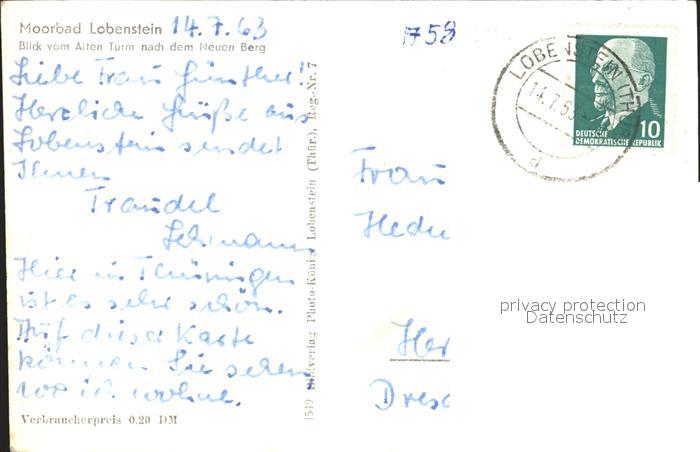 Moorbad Lobenstein 14.7.63
Blick vom Alten Turm nach dem Neuen Berg
Liebe Frau Günther!
Herzliche Grüße aus
Lobenstein sendet
Ihnen
Traudel
Lehmann
Hier in Thüringen
ist es sehr schön.
Auf dieser Karte
können Sie sehen
wo ich wohne.
Verbraucherpreis 0.20 DM
4549 Bildverlag Photo-König Lobenstein (Thür.), Reg.-Nr. 7
1758
LOBENSTEIN (TH
14.7.63
d
DEUTSCHE
DEMOKRATISCHE REPUBLIK
10
Frau
Hedw
Her
Dresd
privacy protection
Datenschutz